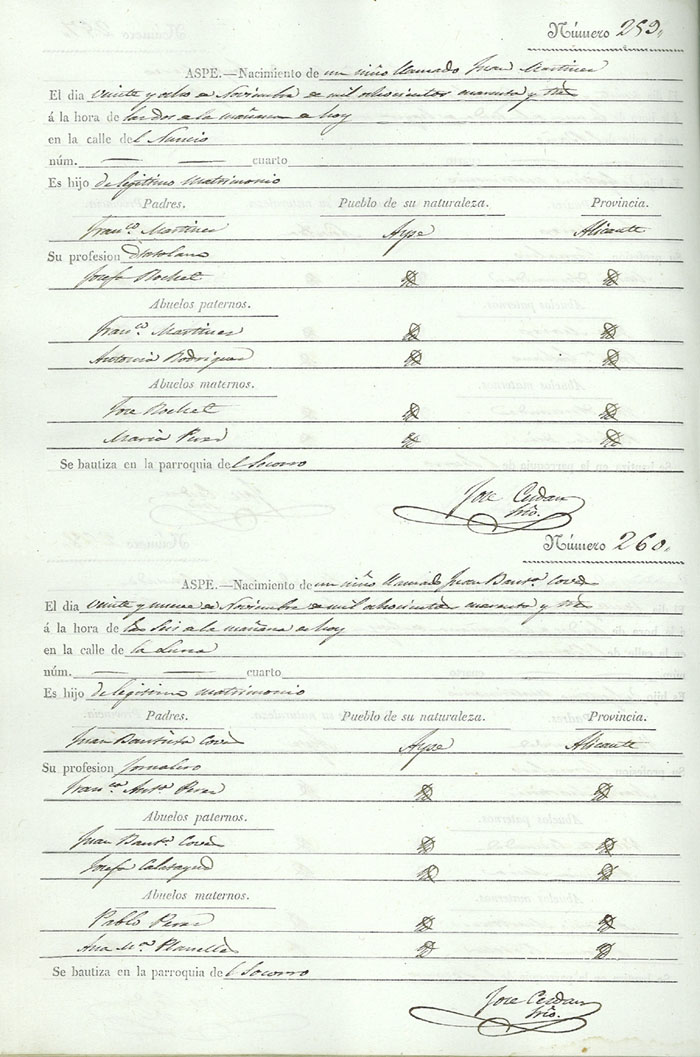 Número 259.
ASPE.—Nacimiento de un niño llamado Juan Martinez
El dia veinte y ocho de Noviembre de mil ochocientos cuarenta y tres
á la hora de las dos de la mañana de hoy
en la calle del Nuncio
núm. — — cuarto
Es hijo de legitimo matrimonio
Padres. Pueblo de su naturaleza. Provincia.
Fran.co Martinez Aspe Alicante
Su profesion
Josefa Bochel
Abuelos paternos.
Fran.co Martinez
Antonia Rodriguez
Abuelos maternos.
Jose Bochel
Maria Perez
Se bautiza en la parroquia del Socorro
Jose Cerdan
Srio.
Número 260.
ASPE.—Nacimiento de un niño llamado Juan Baut.a Coves
El dia veinte y nueve de Noviembre de mil ochocientos cuarenta y tres
á la hora de las seis de la mañana de hoy
en la calle de la Luna
núm. — — cuarto
Es hijo de legitimo matrimonio
Padres. Pueblo de su naturaleza. Provincia.
Juan Bautista Coves Aspe Alicante
Su profesion jornalero
Fran.ca Ant.a Perez
Abuelos paternos.
Juan Baut.a Coves
Josefa Calatayud
Abuelos maternos.
Pablo Perez
Ana M.a Planelles
Se bautiza en la parroquia del Socorro
Jose Cerdan
Srio.